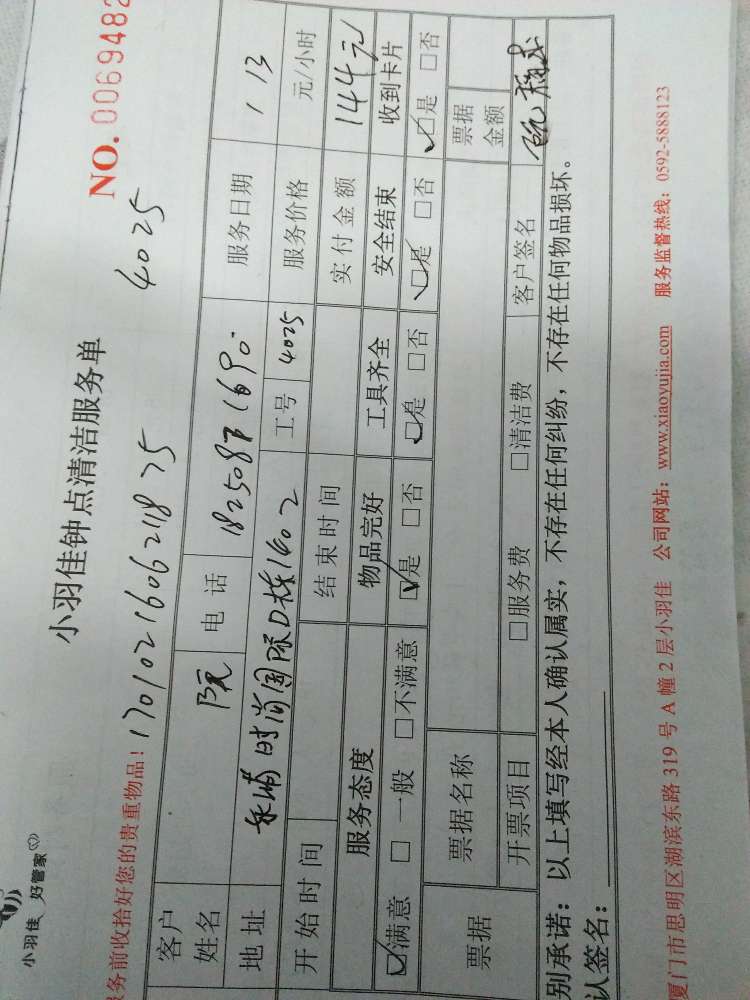 小羽佳 好管家
小羽佳钟点清洁服务单
NO. 0069482
务前收拾好您的贵重物品! 17010216062118 75 4025
客户姓名 阮 电话 服务日期 1 13
地址 时尚国际D栋1602 工号 4025 服务价格 元/小时
开始时间 结束时间 实付金额 144元
服务态度 物品完好 工具齐全 安全结束 收到卡片
☑满意 □一般 □不满意 ☑是 □否 ☑是 □否 ☑是 □否 ☑是 □否
票据 票据名称 票据金额
开票项目 □服务费 □清洁费 客户签名 阮
别承诺：以上填写经本人确认属实，不存在任何纠纷，不存在任何物品损坏。
认签名：
厦门市思明区湖滨东路 319 号 A 幢 2 层小羽佳 公司网站：www.xiaoyujia.com 服务监督热线：0592-5888123